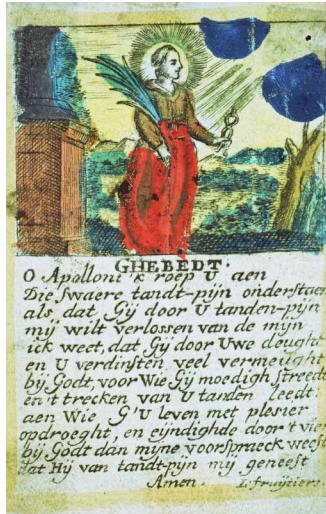 GHEBEDT.
O Apolloni 'k roep U aen
Die swaere tandt-pijn onderstaen
als, dat Gÿ door U tanden-pÿn
mij wilt verlossen van de mÿn
ick weet, dat Gÿ door Uwe deught
en U verdinsten veel vermeught
bÿ Godt, voor Wie Gÿ moedigh streedt
en't trecken van U tanden leedt:
aen Wie G'U leven met plesier
opdroeght, en eÿndighde door't vier
bÿ Godt dan mÿne voorspraeck weest
dat Hÿ van tandt-pÿn mÿ geneest
Amen. L. fruÿtiers.